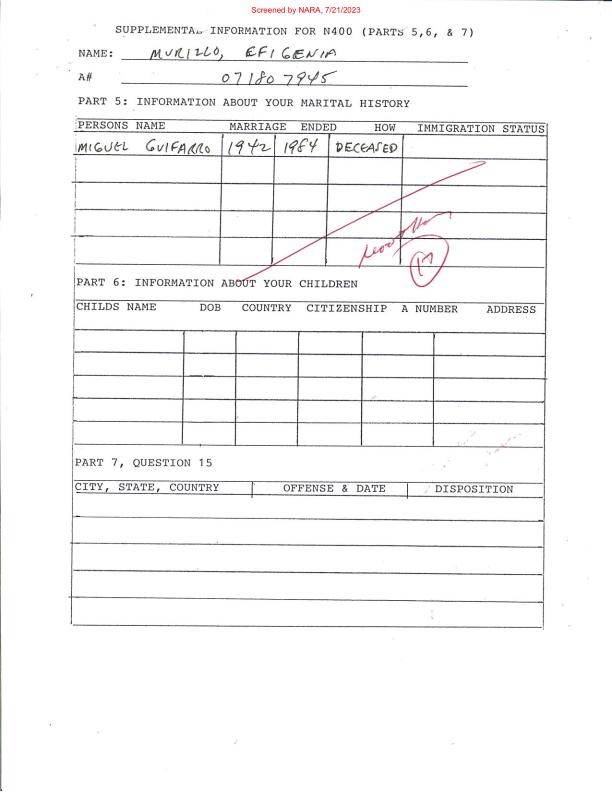 Screened by NARA, 7/21/2023
SUPPLEMENTAL INFORMATION FOR N400 (PARTS 5,6, & 7)
NAME: MURILLO, EFIGENIA
A# 07180 7945
PART 5: INFORMATION ABOUT YOUR MARITAL HISTORY
PERSONS NAME MARRIAGE ENDED HOW IMMIGRATION STATUS
MIGUEL GUIFARRO 1942 1984 DECEASED
17
PART 6: INFORMATION ABOUT YOUR CHILDREN
CHILDS NAME DOB COUNTRY CITIZENSHIP A NUMBER ADDRESS
PART 7, QUESTION 15
CITY, STATE, COUNTRY OFFENSE & DATE DISPOSITION